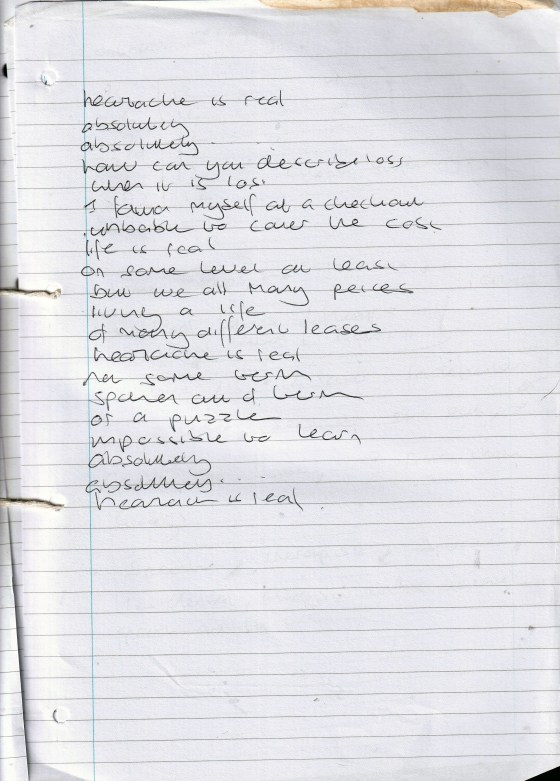 heartache is real
absolutely
absolutely
how can you describe loss
when it is loss
I found myself at a checkout
unbable to cover the cost
life is real
on some level at least
but we all many peices
living a life
of many different leases
heartache is real
not some term
spoken out of turn
or a puzzle
impossible to learn
absolutely
absolutely
heartache is real